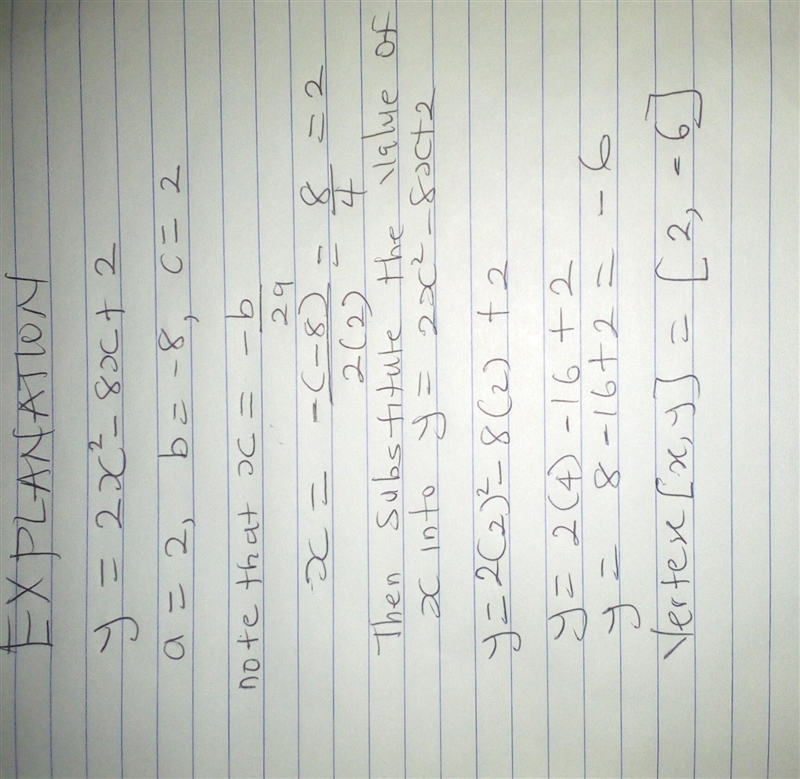 EXPLANATION
y = 2x² - 8x + 2
a = 2, b = -8, c = 2
note that x = -b/2a
x = -(-8)/2(2) = 8/4 = 2
Then substitute the value of
x into y = 2x² - 8x + 2
y = 2(2)² - 8(2) + 2
y = 2(4) - 16 + 2
y = 8 - 16 + 2 = -6
Vertex [x, y] = [2, -6]